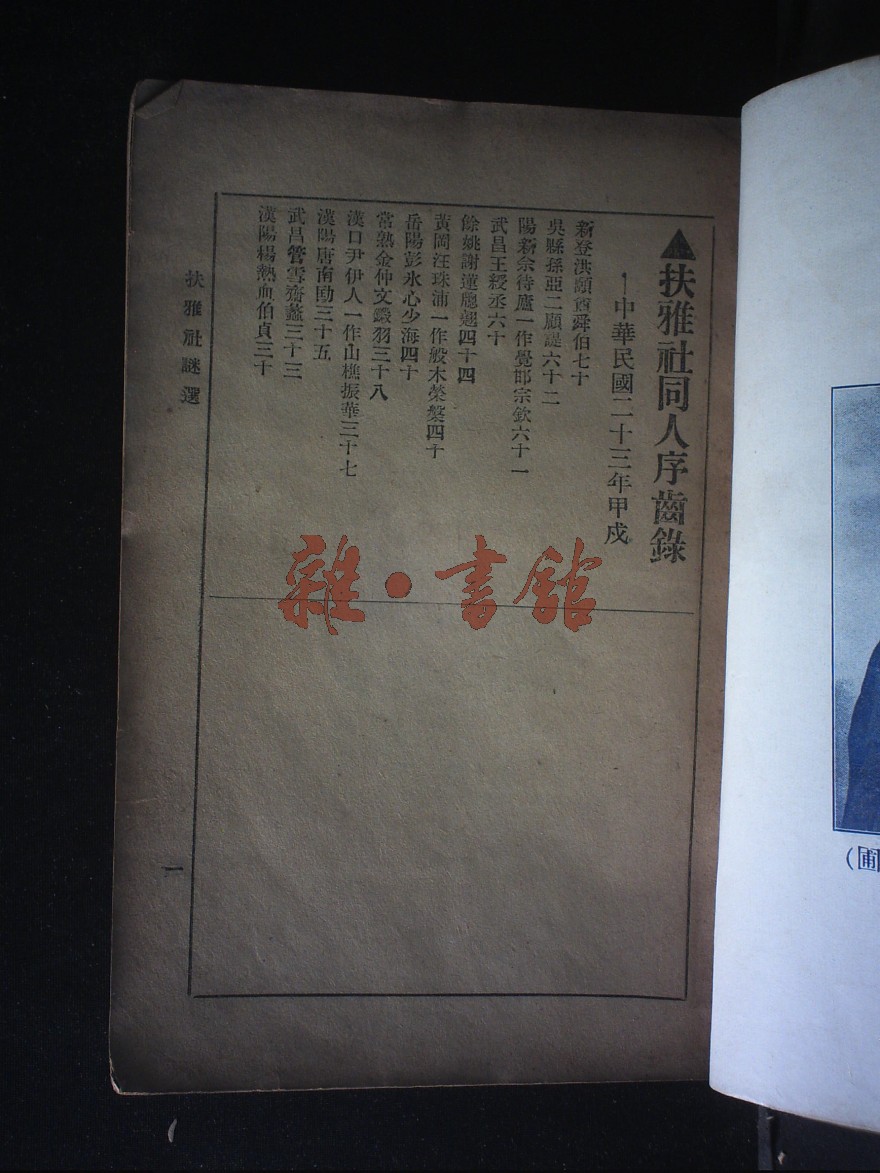 ▲扶雅社同人序齒錄
中華民國二十三年甲戌
新登洪頤酋舜伯七十
吳縣孫亞二顧諟六十二
陽新佘待廬一作覺邯宗欽六十一
武昌王綬丞六十
餘姚謝達廳趨四十四
黃岡汪珠浦一作般木榮槃四十
岳陽彭氷心少海四十
常熟金仲文鎩羽三十八
漢口尹伊人一作山樵振華三十七
漢陽唐南勛三十五
武昌管雪齋蓋三十三
漢陽楊熱血伯貞三十
扶雅社謎選
一
雜·書館
(圃